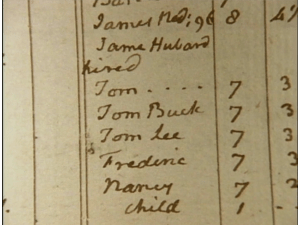 James Red; 96 8
Jame Hubard
hired
Tom .... 7 3
Tom Buck 7 3
Tom Lee 7 3
Frederic 7 3
Nancy 7 2
child 1 -